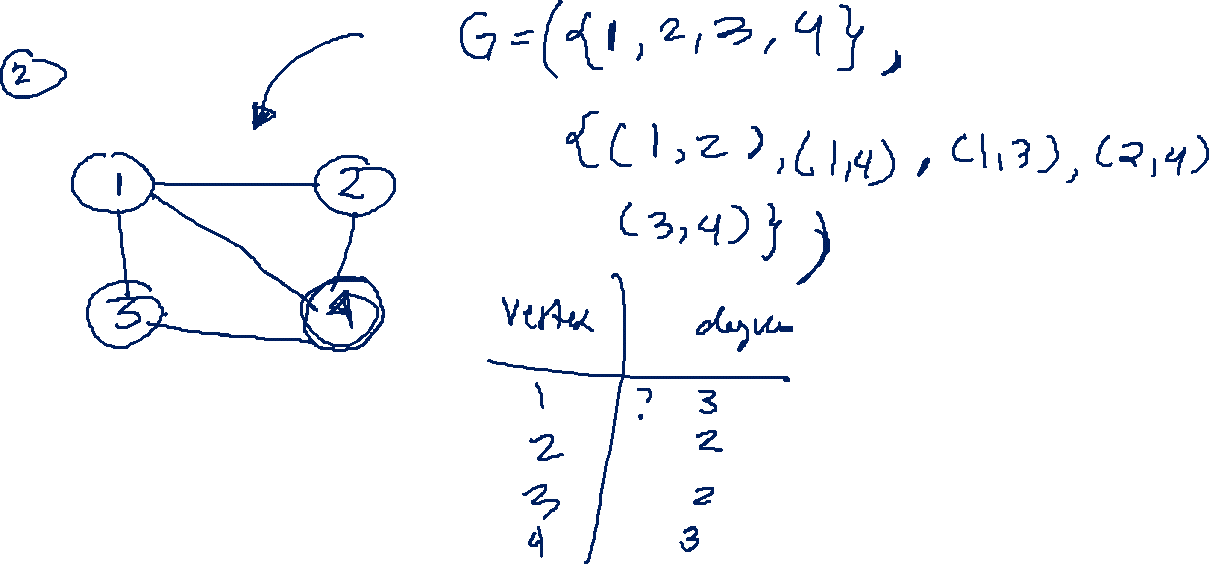 2
G=({1,2,3,4},
{(1,2),(1,4),(1,3),(2,4)
(3,4)})
1 2
3 4
vertex degree
1 ? 3
2 2
3 2
4 3